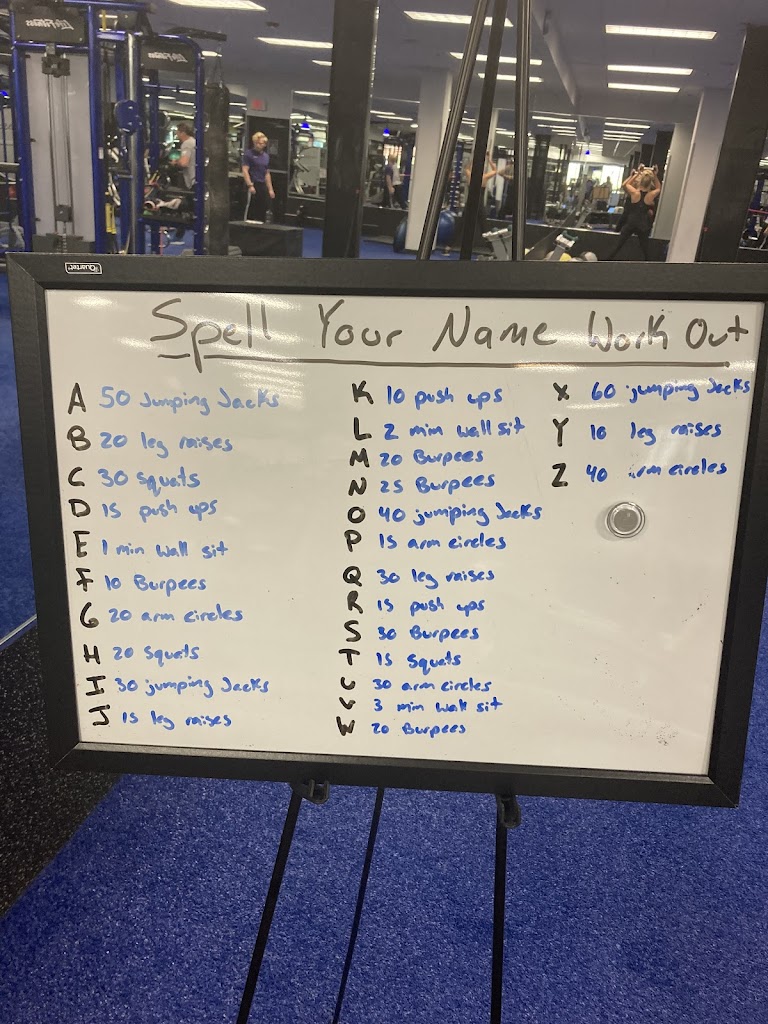 Life Fitness
Life Fitness
Quartet
Spell Your Name Work Out
A 50 Jumping Jacks
B 20 leg raises
C 30 squats
D 15 push ups
E 1 min wall sit
F 10 Burpees
G 20 arm circles
H 20 Squats
I 30 jumping Jacks
J 15 leg raises
K 10 push ups
L 2 min wall sit
M 20 Burpees
N 25 Burpees
O 40 jumping Jacks
P 15 arm circles
Q 30 leg raises
R 15 push ups
S 30 Burpees
T 15 Squats
U 30 arm circles
V 3 min wall sit
W 20 Burpees
X 60 jumping Jacks
Y 10 leg raises
Z 40 arm circles